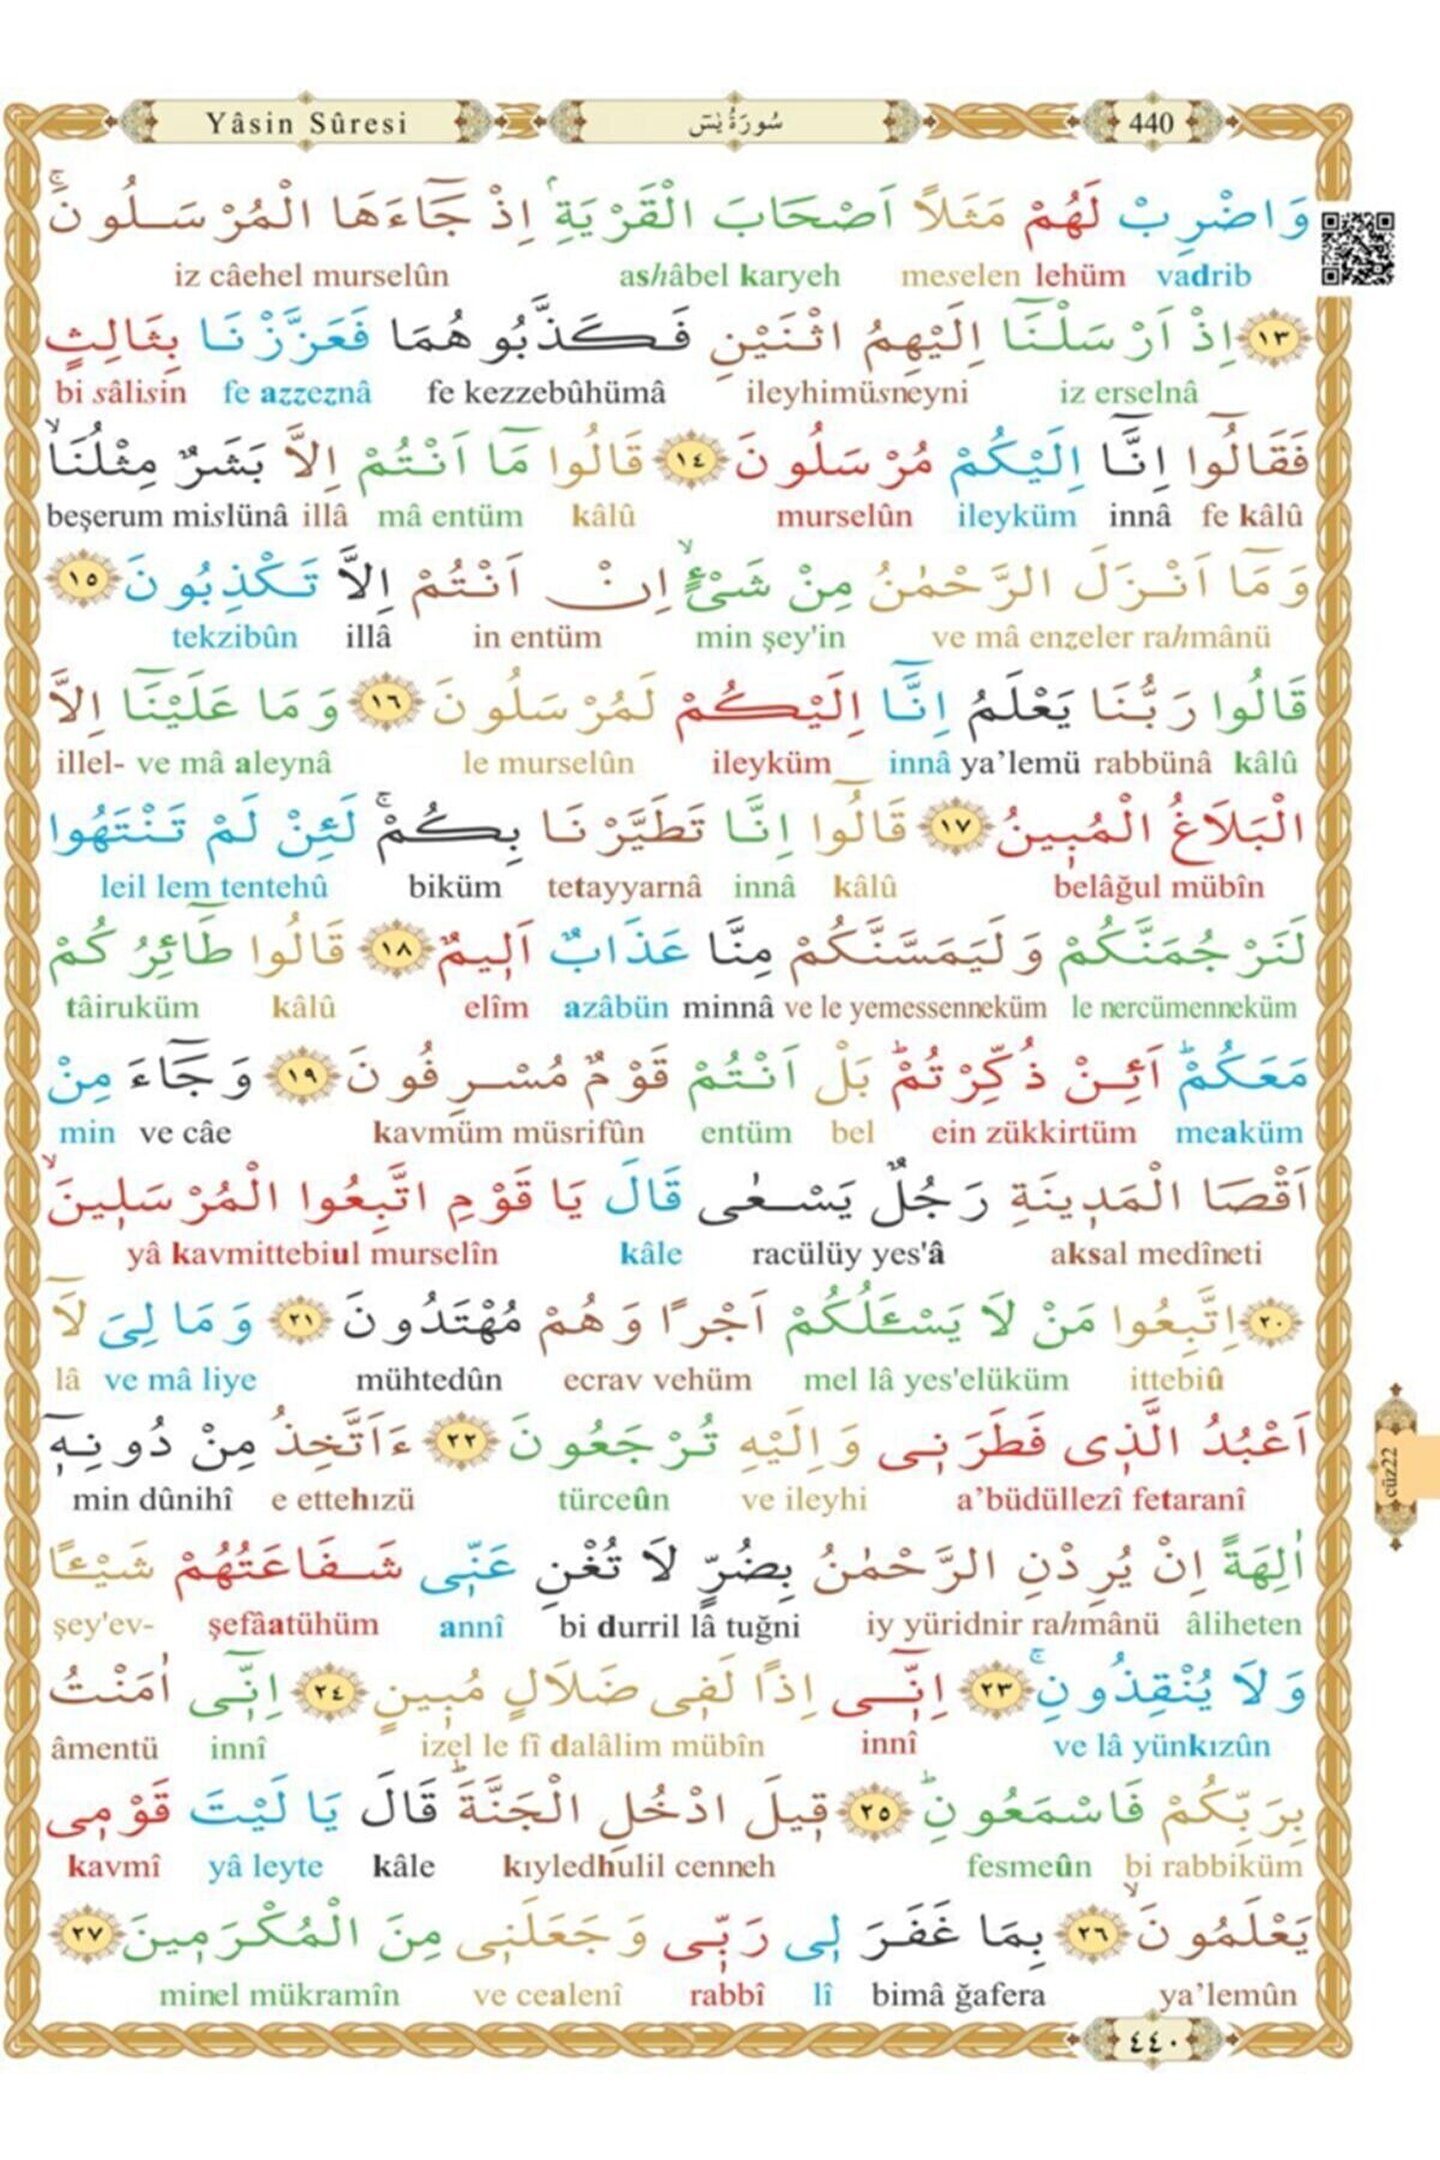 Yâsin Sûresi
سُورَةُ يٰسٓ
440
وَاضْرِبْ لَهُمْ مَثَلاً اَصْحَابَ الْقَرْيَةِۢ اِذْ جَٓاءَهَا الْمُرْسَلُونَۚ
iz câehel murselûn ashâbel karyeh meselen lehüm vadrib
﴿١٣﴾ اِذْ اَرْسَلْنَٓا اِلَيْهِمُ اثْنَيْنِ فَكَذَّبُوهُمَا فَعَزَّزْنَا بِثَالِثٍ
bi sâlisin fe azzeznâ fe kezzebûhümâ ileyhimüsneyni iz erselnâ
فَقَالُٓوا اِنَّٓا اِلَيْكُمْ مُرْسَلُونَ ﴿١٤﴾ قَالُوا مَٓا اَنْتُمْ اِلاَّ بَشَرٌ مِثْلُنَاۙ
beşerum mislünâ illâ mâ entüm kâlû murselûn ileyküm innâ fe kâlû
وَمَٓا اَنْزَلَ الرَّحْمٰنُ مِنْ شَيْءٍۙ اِنْ اَنْتُمْ اِلاَّ تَكْذِبُونَ ﴿١٥﴾
tekzibûn illâ in entüm min şey'in ve mâ enzeler rahmânü
قَالُوا رَبُّنَا يَعْلَمُ اِنَّٓا اِلَيْكُمْ لَمُرْسَلُونَ ﴿١٦﴾ وَمَا عَلَيْنَٓا اِلاَّ
illel- ve mâ aleynâ le murselûn ileyküm innâ ya’lemü rabbünâ kâlû
الْبَلاَغُ الْمُبٖينُ ﴿١٧﴾ قَالُٓوا اِنَّا تَطَيَّرْنَا بِكُمْۚ لَئِنْ لَمْ تَنْتَهُوا
leil lem tentehû biküm tetayyarnâ innâ kâlû belâğul mübîn
لَنَرْجُمَنَّكُمْ وَلَيَمَسَّنَّكُمْ مِنَّا عَذَابٌ اَلٖيمٌ ﴿١٨﴾ قَالُوا طَٓائِرُكُمْ
tâiruküm kâlû elîm azâbün minnâ ve le yemessenneküm le nercümenneküm
مَعَكُمْؕ اَئِنْ ذُكِّرْتُمْؕ بَلْ اَنْتُمْ قَوْمٌ مُسْرِفُونَ ﴿١٩﴾ وَجَٓاءَ مِنْ
min ve câe kavmüm müsrifûn entüm bel ein zükkirtüm meaküm
اَقْصَا الْمَدٖينَةِ رَجُلٌ يَسْعٰى قَالَ يَا قَوْمِ اتَّبِعُوا الْمُرْسَلٖينَۙ
yâ kavmittebiul murselîn kâle racülüy yes'â aksal medîneti
﴿٢٠﴾ اِتَّبِعُوا مَنْ لاَ يَسْـَٔلُكُمْ اَجْرًا وَهُمْ مُهْتَدُونَ ﴿٢١﴾ وَمَا لِيَ لَٓا
lâ ve mâ liye mühtedûn ecrav vehüm mel lâ yes'elüküm ittebiû
اَعْبُدُ الَّذٖى فَطَرَنٖى وَاِلَيْهِ تُرْجَعُونَ ﴿٢٢﴾ ءَاَتَّخِذُ مِنْ دُونِهٖٓ
min dûnihî e ettehızü türceûn ve ileyhi a’büdüllezî fetaranî
اٰلِهَةً اِنْ يُرِدْنِ الرَّحْمٰنُ بِضُرٍّ لاَ تُغْنِ عَنّٖى شَفَاعَتُهُمْ شَيْـًٔا
şey'ev- şefâatühüm annî bi durril lâ tuğni iy yüridnir rahmânü âliheten
وَلاَ يُنْقِذُونِۚ ﴿٢٣﴾ اِنّٖٓى اِذًا لَفٖى ضَلاَلٍ مُبٖينٍ ﴿٢٤﴾ اِنّٖٓى اٰمَنْتُ
âmentü innî izel le fî dalâlim mübîn innî ve lâ yünkızûn
بِرَبِّكُمْ فَاسْمَعُونِؕ ﴿٢٥﴾ قٖيلَ ادْخُلِ الْجَنَّةَؕ قَالَ يَا لَيْتَ قَوْمٖى
kavmî yâ leyte kâle kıyledhulil cenneh fesmeûn bi rabbiküm
يَعْلَمُونَۙ ﴿٢٦﴾ بِمَا غَفَرَ لٖى رَبّٖى وَجَعَلَنٖى مِنَ الْمُكْرَمٖينَ ﴿٢٧﴾
minel mükramîn ve cealenî rabbî lî bimâ ğafera ya’lemûn
cüz22
٤٤٠